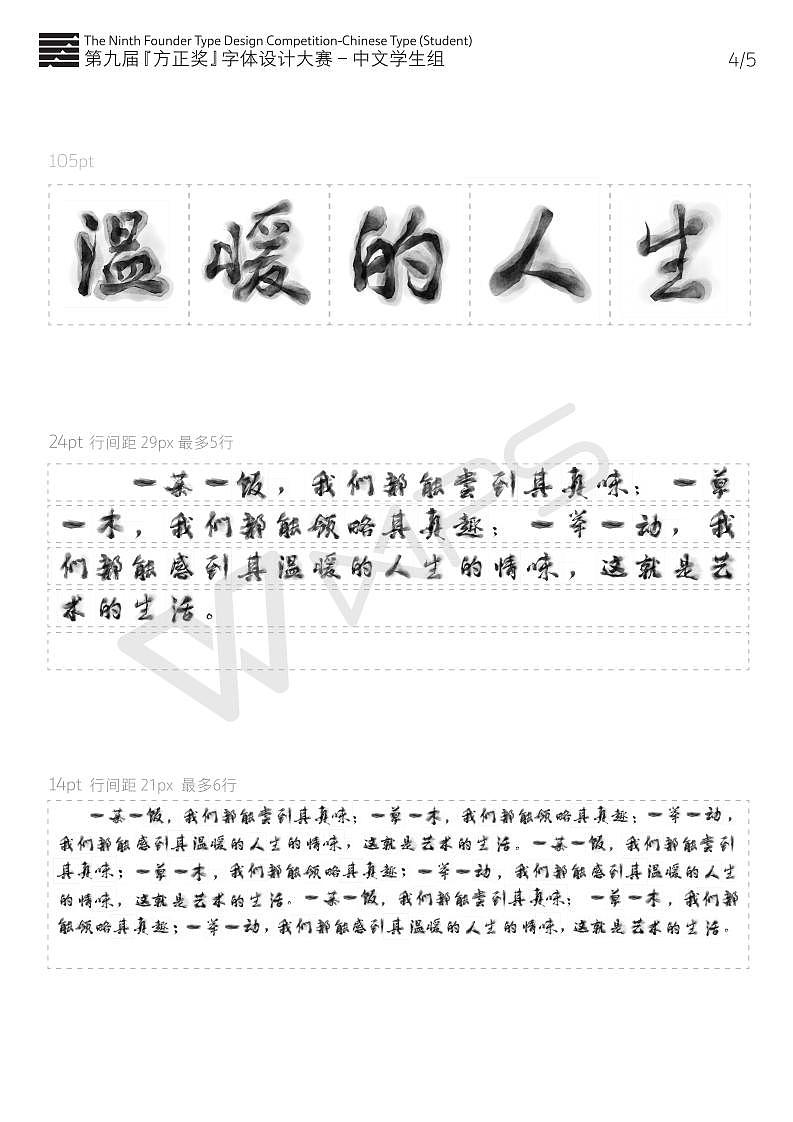 The Ninth Founder Type Design Competition-Chinese Type (Student)
第九届『方正奖』字体设计大赛 – 中文学生组
4/5
105pt
温暖的人生
24pt 行间距 29px 最多5行
一菜一饭，我们都能尝到其真味；一草
一木，我们都能领略其真趣；一举一动，我
们都能感到其温暖的人生的情味，这就是艺
术的生活。
WPS
14pt 行间距 21px 最多6行
一菜一饭，我们都能尝到其真味；一草一木，我们都能领略其真趣；一举一动，
我们都能感到其温暖的人生的情味，这就是艺术的生活。一菜一饭，我们都能尝到
其真味；一草一木，我们都能领略其真趣；一举一动，我们都能感到其温暖的人生
的情味，这就是艺术的生活。一菜一饭，我们都能尝到其真味；一草一木，我们都
能领略其真趣；一举一动，我们都能感到其温暖的人生的情味，这就是艺术的生活。